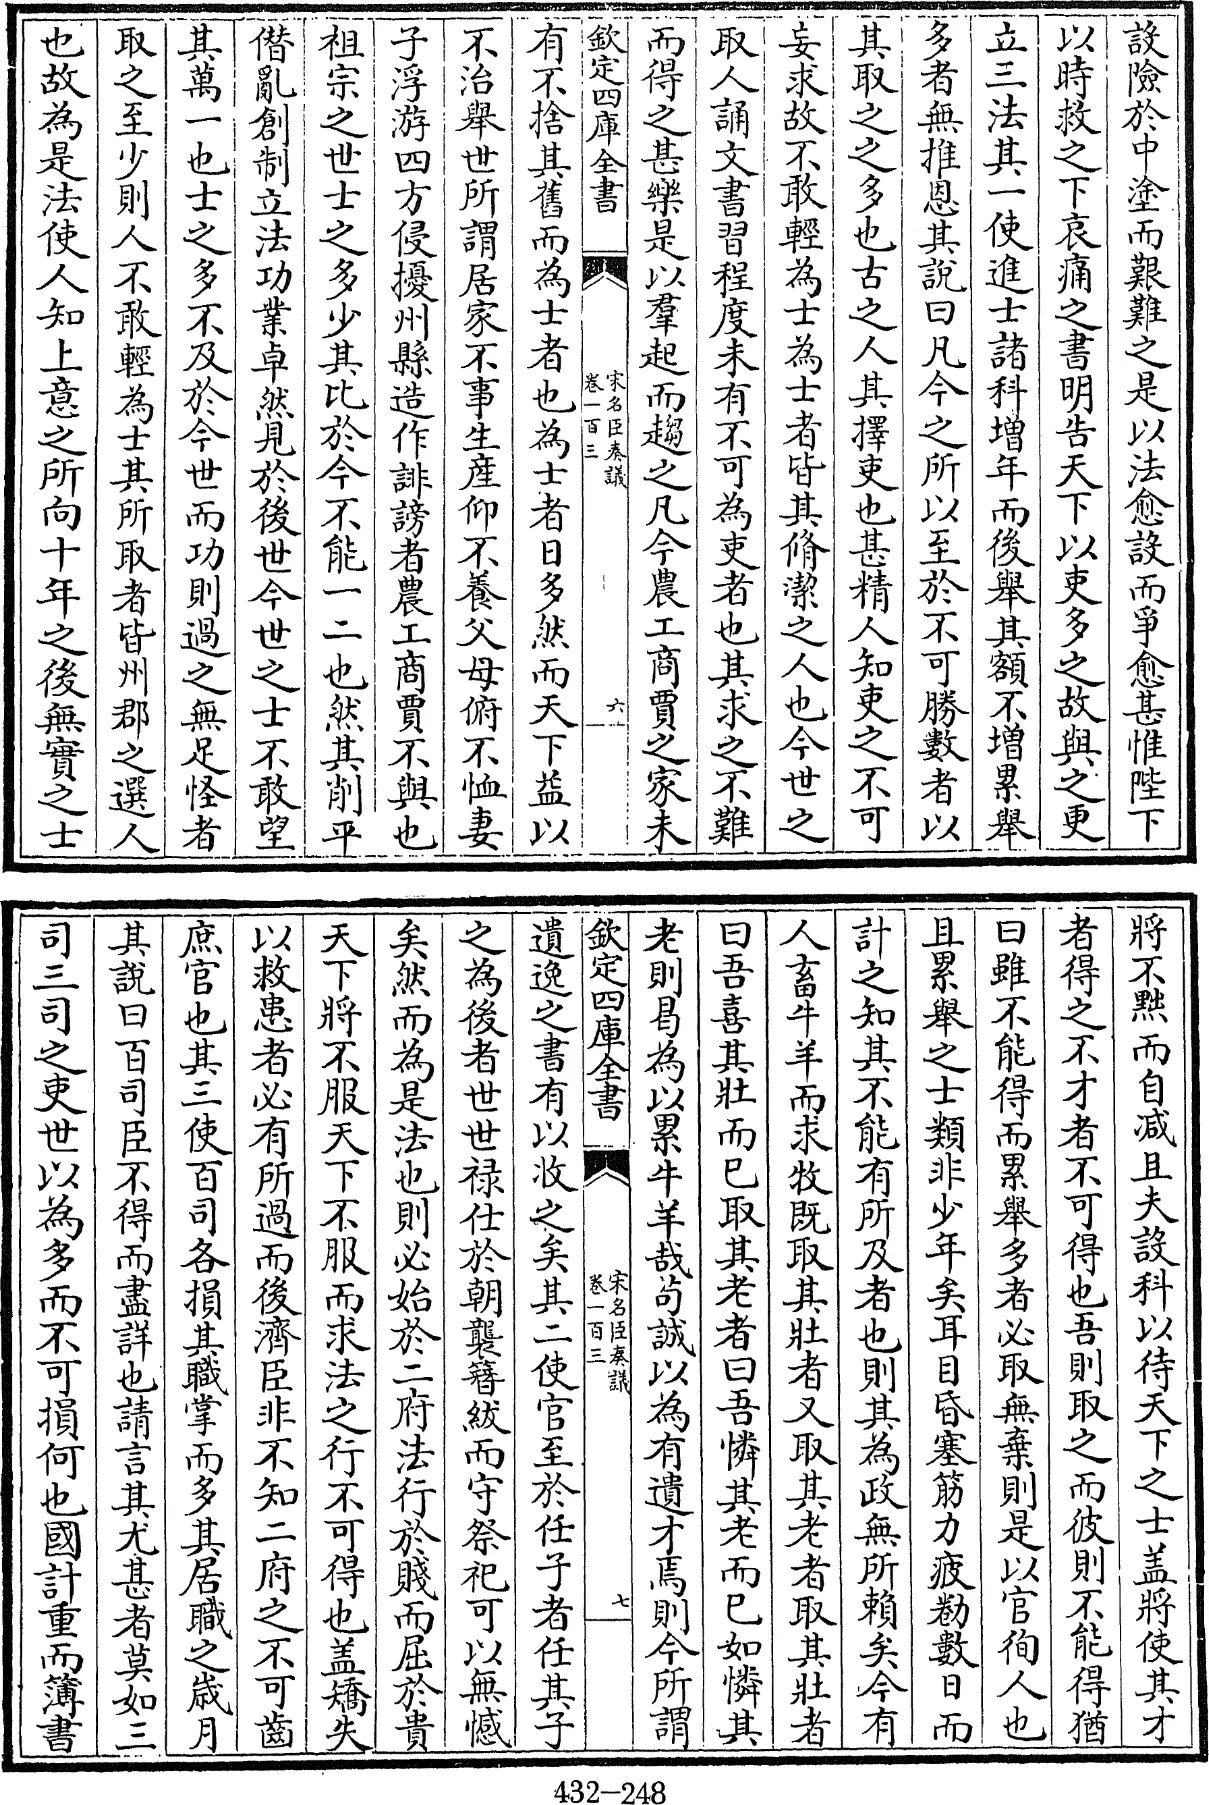 設險於中塗而艱難之是以法愈設而爭愈甚惟陛下
以時救之下哀痛之書明告天下以吏多之故與之更
立三法其一使進士諸科增年而後舉其額不增累舉
多者無推恩其說曰凡今之所以至於不可勝數者以
其取之之多也古之人其擇吏也甚精人知吏之不可
妄求故不敢輕為士為士者皆其脩潔之人也今世之
取人誦文書習程度未有不可為吏者也其求之不難
而得之甚樂是以羣起而趨之凡今農工商賈之家未
欽定四庫全書
宋名臣奏議
卷一百三
六
有不捨其舊而為士者也為士者日多然而天下益以
不治舉世所謂居家不事生產仰不養父母俯不恤妻
子浮游四方侵擾州縣造作誹謗者農工商賈不與也
祖宗之世士之多少其比於今不能一二也然其削平
僭亂創制立法功業卓然見於後世今世之士不敢望
其萬一也士之多不及於今世而功則過之無足怪者
取之至少則人不敢輕為士其所取者皆州郡之選人
也故為是法使人知上意之所向十年之後無實之士
將不黜而自減且夫設科以待天下之士盖將使其才
者得之不才者不可得也吾則取之而彼則不能得猶
曰雖不能得而累舉多者必取無棄則是以官徇人也
且累舉之士類非少年矣耳目昏塞筋力疲勌數日而
計之知其不能有所及者也則其為政無所賴矣今有
人畜牛羊而求牧既取其壯者又取其老者取其壯者
曰吾喜其壯而已取其老者曰吾憐其老而已如憐其
老則曷為以累牛羊哉苟誠以為有遺才焉則今所謂
欽定四庫全書
宋名臣奏議
卷一百三
七
遺逸之書有以收之矣其二使官至於任子者任其子
之為後者世世祿仕於朝襲簪紱而守祭祀可以無憾
矣然而為是法也則必始於二府法行於賤而屈於貴
天下將不服天下不服而求法之行不可得也盖矯失
以救患者必有所過而後濟臣非不知二府之不可齒
庶官也其三使百司各損其職掌而多其居職之歲月
其說曰百司臣不得而盡詳也請言其尤甚者莫如三
司三司之吏世以為多而不可損何也國計重而簿書
432-248